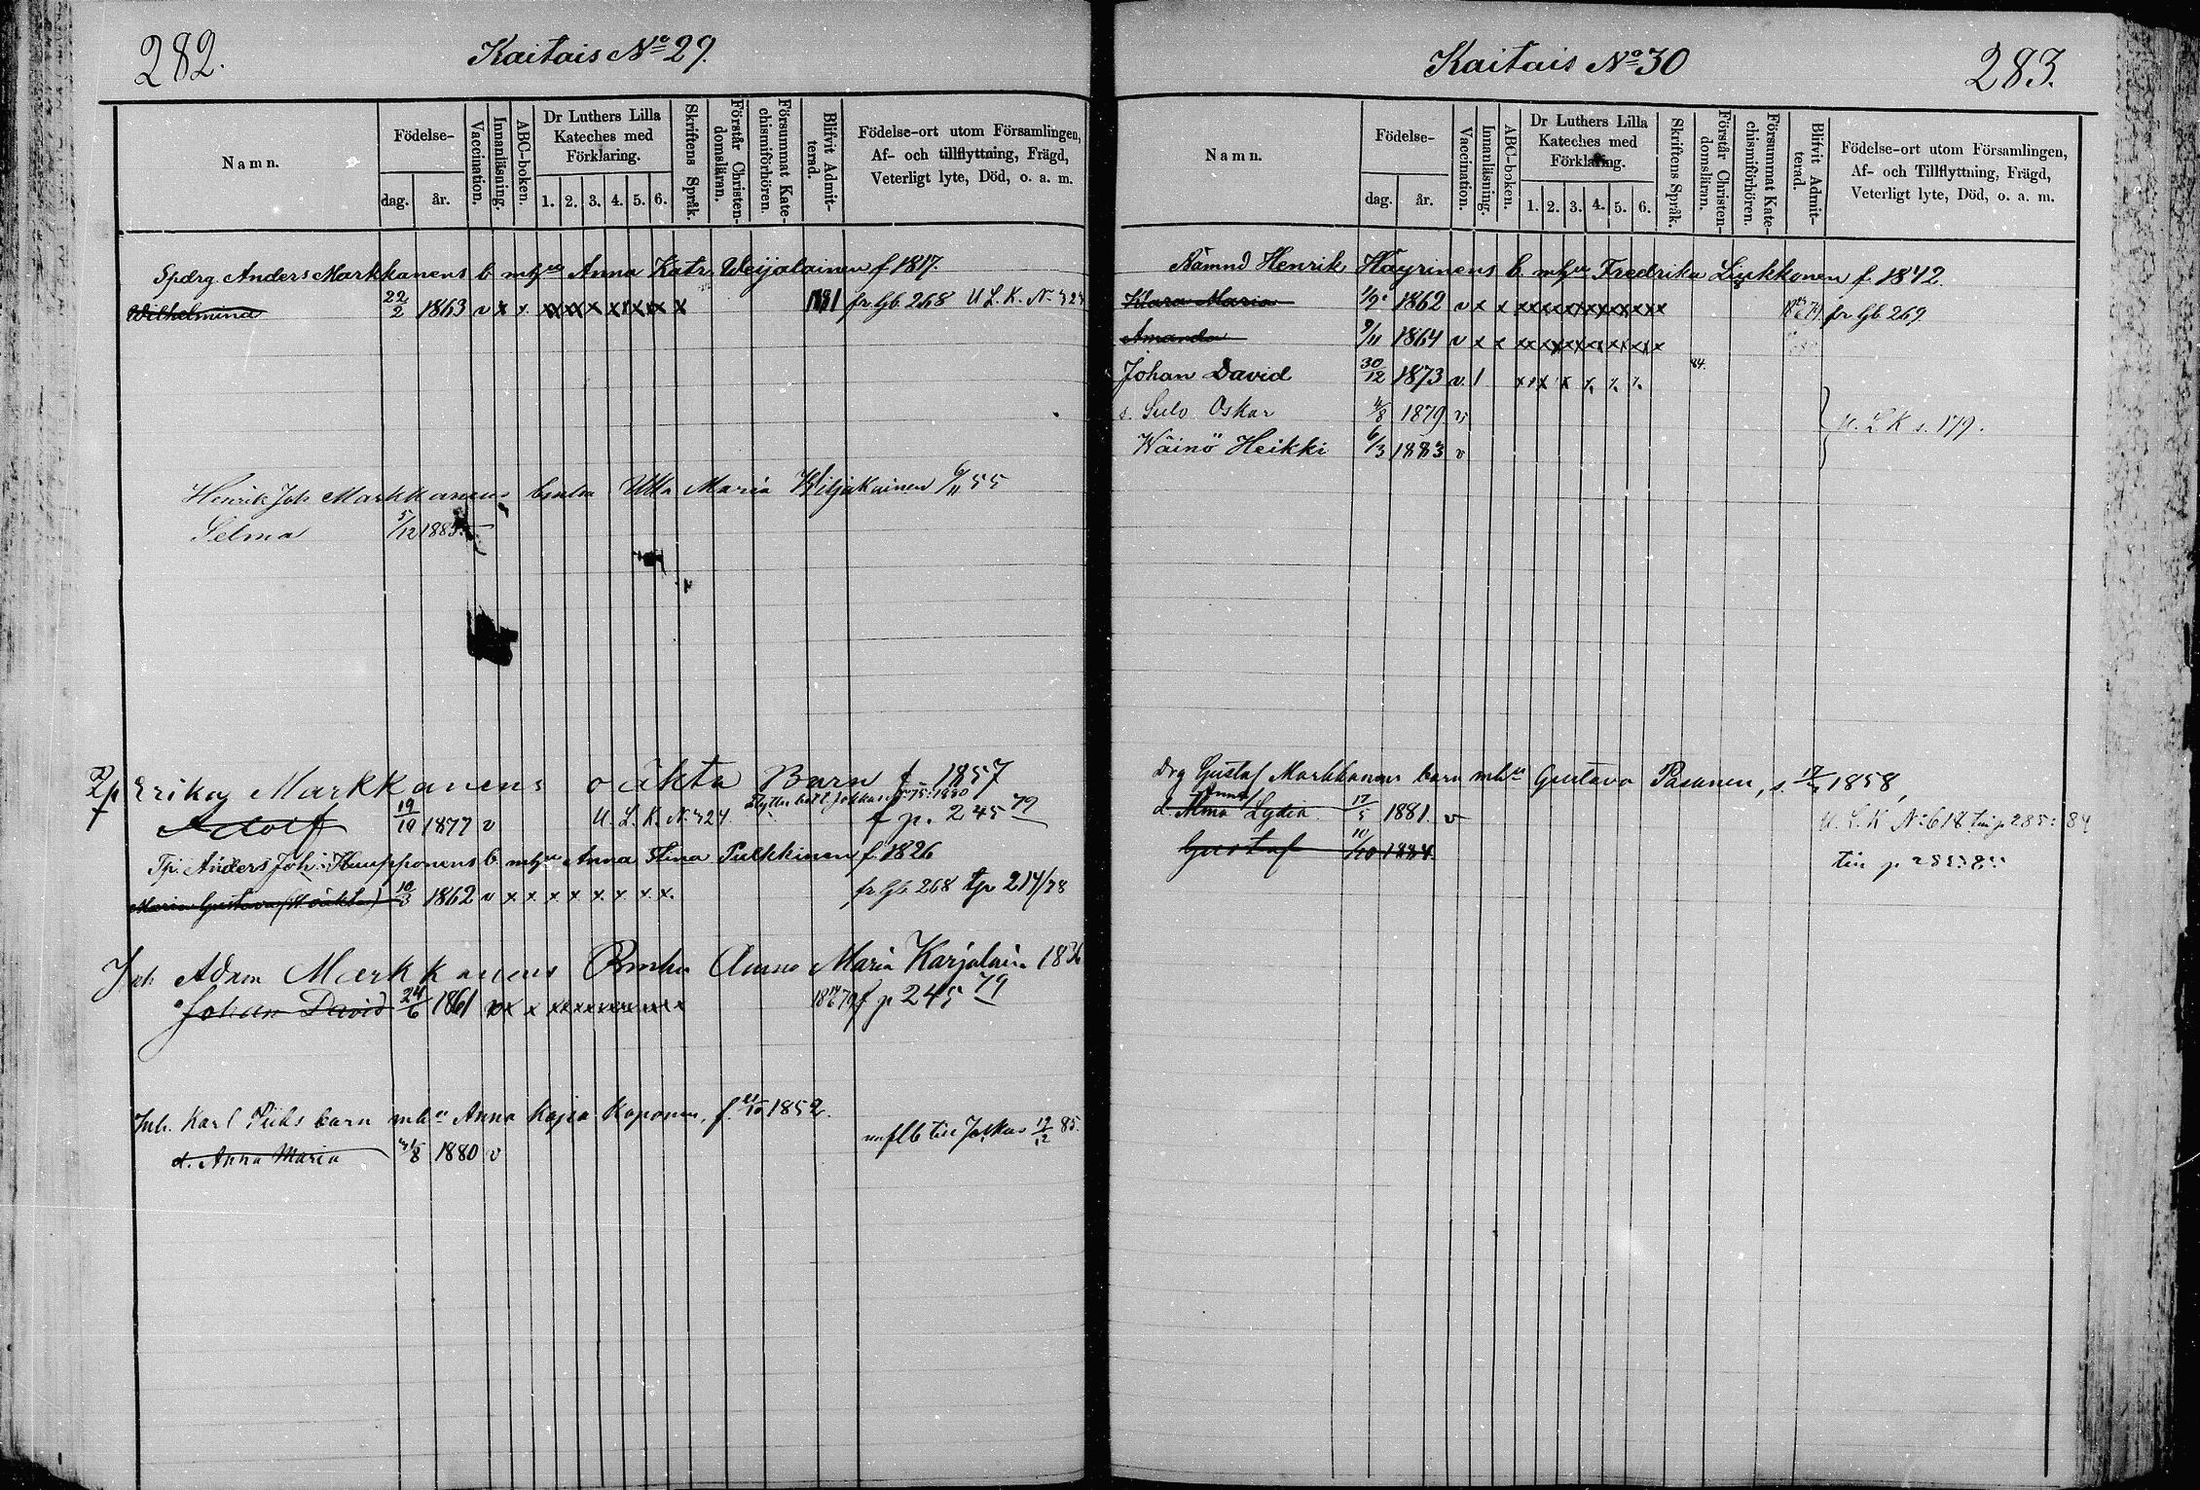 282.
Kaitais No 29.
Namn.
Födelse-
dag.
år.
Vaccination.
Innanläsning.
ABC-boken.
Dr Luthers Lilla Kateches med Förklaring.
1. 2. 3. 4. 5. 6.
Skriftens Språk.
Förstår Christen-domsläran.
Försummat Kate-chismiförhören.
Blifvit Admit-terad.
Födelse-ort utom Församlingen,
Af- och tillflyttning, Frägd,
Veterligt lyte, Död, o. a. m.
Spdrg. Anders Markkanens b. mhu Anna Katr. Weijalainen f. 1817.
Wilhelmina 22/2 1863 v x x xx xx x x x x x x fr Gb 268 U. L. K. No 424
Henrik Joh Markkanens Maria 6/11 55
Selma 5/12 1883
Erika Markkanens oäkta Barn f. 1857
Adolf 19/10 1877 v U. L. K. No 424 f p. 245 79
Anders Joh. b. mhu Anna Stina Pulkkinen f. 1826
Maria Gustava (oäkta) 10/3 1862 v x x x x x. x x. x. fr Gb 268 tp 214/78
Inh Adam Markkanens Anna Maria Karjalain 1836
Johan David 24/6 1861 v x x x x x x x x x x f p 245 79
Inh. Karl barn mhu Anna Kajsa Koponen, f. 1852.
d. Anna Maria 1880 v mflb till 19/12 85.
283.
Kaitais No 30
Namn.
Födelse-
dag.
år.
Vaccination.
Innanläsning.
ABC-boken.
Dr Luthers Lilla Kateches med Förklaring.
1. 2. 3. 4. 5. 6.
Skriftens Språk.
Förstår Christen-domsläran.
Försummat Kate-chismiförhören.
Blifvit Admit-terad.
Födelse-ort utom Församlingen,
Af- och Tillflyttning, Frägd,
Veterligt lyte, Död, o. a. m.
Henrik Häyrinens b. mhu Fredrika Lyykkonen f. 1842.
Klara Maria 1/9 1862 v x x x x x x x x x x x fr Gb 269
Amanda 9/11 1864 v x x x x x x x x x x
Johan David 30/12 1873 v 1 x x x x x x x 84.
s. Sulo Oskar 4/8 1879. v
U. L. K s. 179.
Wäinö Heikki 6/3 1883 v
Drg Gustaf Markkanens barn mhu Gustava Pasanen, 1858,
Anna
d. Alma Lydia 17/5 1881. v U. L. K No 618 till p 285: 84
Gustaf 10/10 1884. till p 285